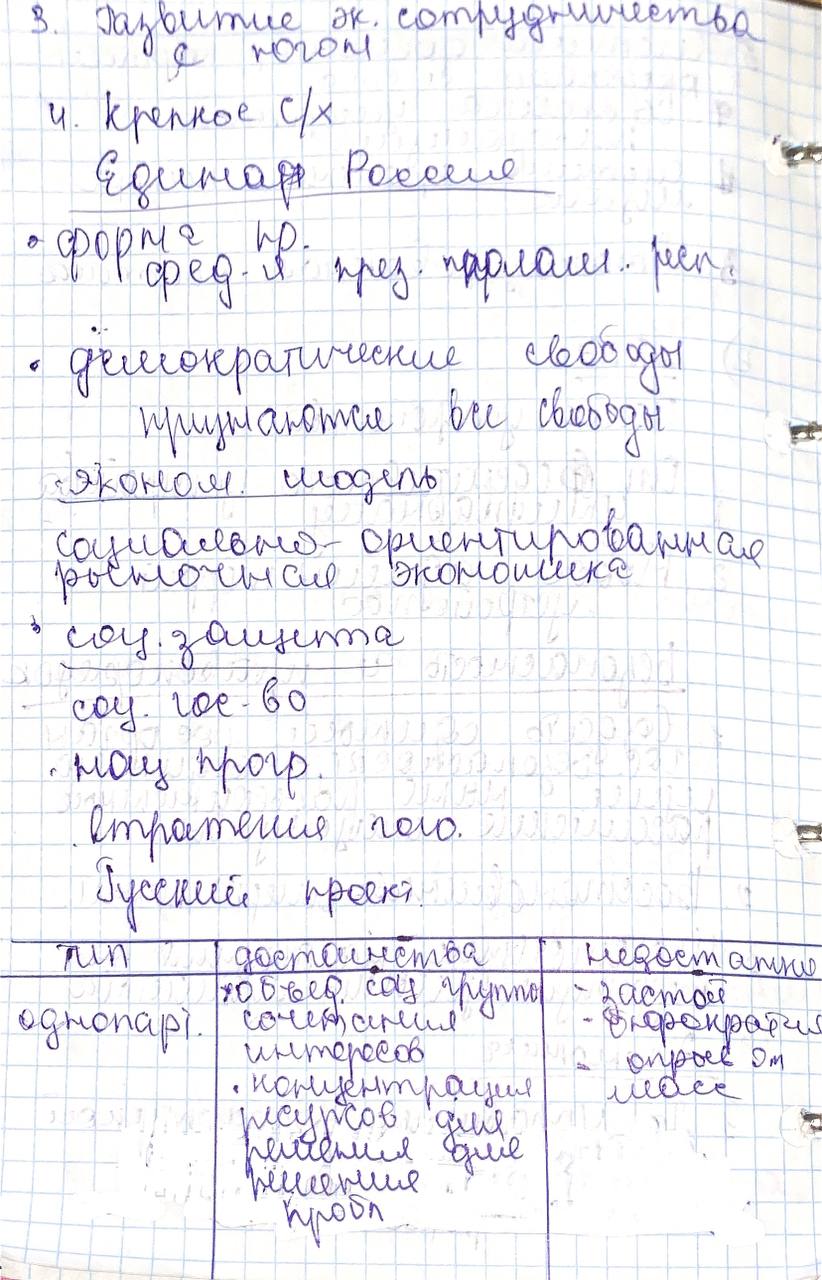 3. Развитие эк. сотрудничества
с югом
4. Крепкое с/х
Единая Россия
• форма пр.
фед-я през. парлам.. респ.
• демократические свободы
признаются все свободы
эконом. модель
социально-ориентированная
рыночная экономика
соц. защита
соц. гос-во
. нац прогр.
. стратегия
Русский проект.
тип достоинства недостатки
однопарт.
• объед. соц группы
сочетания
интересов
. концентрация
ресурсов для
решения для
решения
пробл
- застой
- бюрократия
- отрыв от
масс